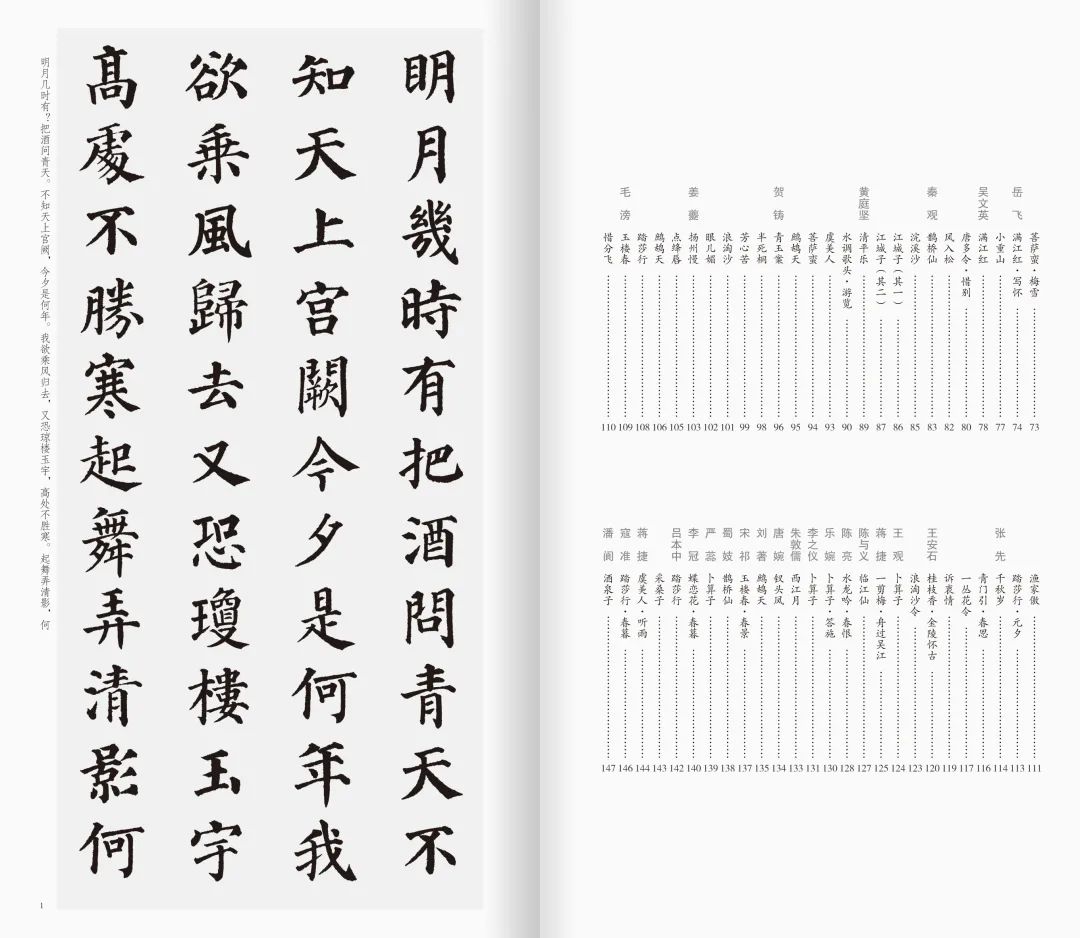 菩萨蛮·梅雪 73
岳飞 满江红·写怀 74
小重山 77
吴文英 满江红 78
唐多令·惜别 80
风入松 82
秦观 鹊桥仙 83
浣溪沙 85
江城子（其一） 86
江城子（其二） 87
黄庭坚 清平乐 89
水调歌头·游览 90
虞美人 93
菩萨蛮 94
鹧鸪天 95
贺铸 青玉案 96
半死桐 98
芳心苦 99
浪淘沙 101
眼儿媚 102
姜夔 扬州慢 103
点绛唇 105
鹧鸪天 106
踏莎行 108
毛滂 玉楼春 109
惜分飞 110
渔家傲 111
踏莎行·元夕 113
张先 千秋岁 114
青门引·春思 116
一丛花令 117
诉衷情 119
王安石 桂枝香·金陵怀古 120
浪淘沙令 123
王观 卜算子 124
蒋捷 一剪梅·舟过吴江 125
陈与义 临江仙 127
陈亮 水龙吟·春恨 128
乐婉 卜算子·答施 130
李之仪 卜算子 131
朱敦儒 西江月 133
唐婉 钗头凤 134
刘著 鹧鸪天 135
宋祁 玉楼春·春景 137
蜀妓 鹊桥仙 138
严蕊 卜算子 139
李冠 蝶恋花·春暮 140
吕本中 踏莎行 142
采桑子 143
蒋捷 虞美人·听雨 144
寇准 踏莎行·春暮 146
潘阆 酒泉子 147
明月幾時有把酒問青天不
知天上宫闕今夕是何年我
欲乘風歸去又恐瓊樓玉宇
高處不勝寒起舞弄清影何
明月几时有？把酒问青天。不知天上宫阙，今夕是何年。我欲乘风归去，又恐琼楼玉宇，高处不胜寒。起舞弄清影，何
1